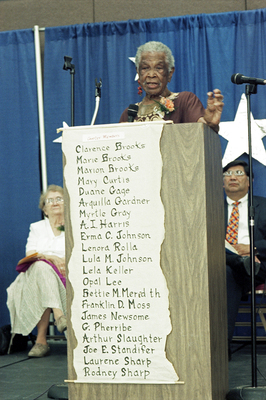 Clarence Brooks
Marie Brooks
Marion Brooks
Mary Curtis
Duane Gage
Arquilla Gardner
Myrtle Gray
A.I. Harris
Erma C. Johnson
Lenora Rolla
Lula M. Johnson
Lela Keller
Opal Lee
Bettie M. Merid th
Franklin D. Moss
James Newsome
G. Pherribe
Arthur Slaughter
Joe E. Standifer
Laurene Sharp
Rodney Sharp